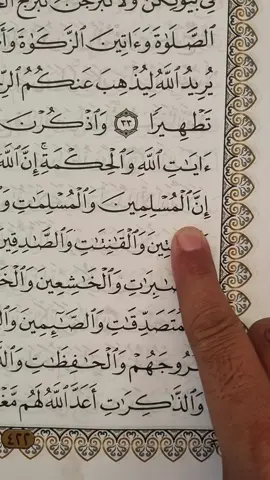 فِي بُيُوتِكُنَّ وَلَا تَبَرَّجْنَ تَبَرُّجَ
ٱلصَّلَوٰةَ وَءَاتِينَ ٱلزَّكَوٰةَ
يُرِيدُ ٱللَّهُ لِيُذْهِبَ عَنكُمُ
تَطْهِيرًا ٣٣ وَٱذْكُرْنَ
ءَايَٰتِ ٱللَّهِ وَٱلْحِكْمَةِ ۚ إِنَّ ٱللَّهَ
إِنَّ ٱلْمُسْلِمِينَ وَٱلْمُسْلِمَٰتِ
وَٱلْقَٰنِتَٰتِ وَٱلصَّٰدِقِينَ
وَٱلْخَٰشِعِينَ
وَٱلصَّٰٓئِمِينَ
وَٱلْحَٰفِظَٰتِ
وَٱلذَّٰكِرَٰتِ أَعَدَّ ٱللَّهُ لَهُم
٤٢٢